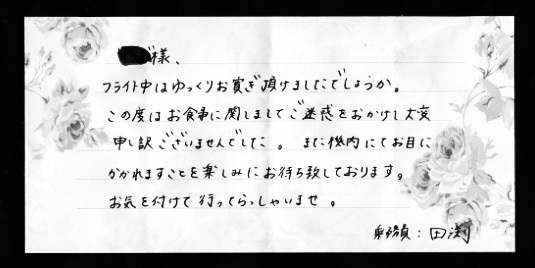 様、
フライト中はゆっくりお寛ぎ頂けましたでしょうか。
この度はお食事に関しましてご迷惑をおかけし大変
申し訳ございませんでした。また機内にてお目に
かかれますことを楽しみにお待ち致しております。
お気を付けて行ってらっしゃいませ。
乗務員：田渕